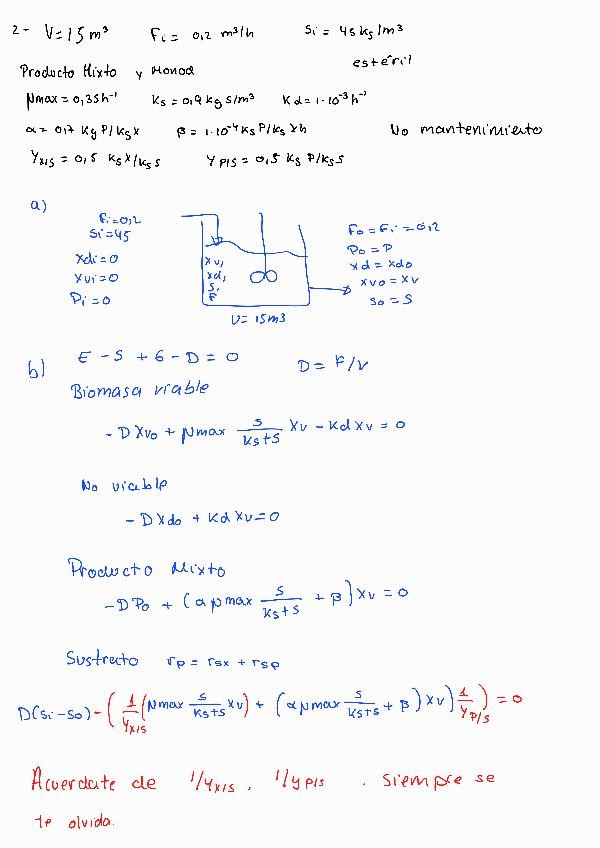 2- V=15 m³ Fi = 0,2 m³/h Si = 45 kg/m³
estéril
Producto Mixto y Monod
μmax = 0,35 h⁻¹ Ks = 0,9 kg S/m³ Kd = 1·10⁻³ h⁻¹
α = 0,7 kg P/kg X β = 1·10⁻⁴ kg P/kg X h No mantenimiento
Yx/s = 0,5 kg X/kg S Yp/s = 0,5 kg P/kg S
a)
Fi = 0,2
Si = 45
Xdi = 0
Xvi = 0
Pi = 0
Xv,
Xd,
S,
P
V = 15 m3
Fo = Fi = 0,2
Po = P
Xd = Xdo
Xvo = Xv
So = S
b) E - S + G - D = 0 D = F/V
Biomasa viable
- D Xvo + μmax S/(Ks+S) Xv - Kd Xv = 0
No viable
- D Xdo + Kd Xv = 0
Producto Mixto
- D Po + (α μmax S/(Ks+S) + β) Xv = 0
Sustrato rp = rsx + rsp
D(Si - So) - (1/Yx/s (μmax S/(Ks+S) Xv) + (α μmax S/(Ks+S) + β) Xv) 1/Yp/s) = 0
Acuerdate de 1/Yx/s, 1/Yp/s . Siempre se
te olvida.